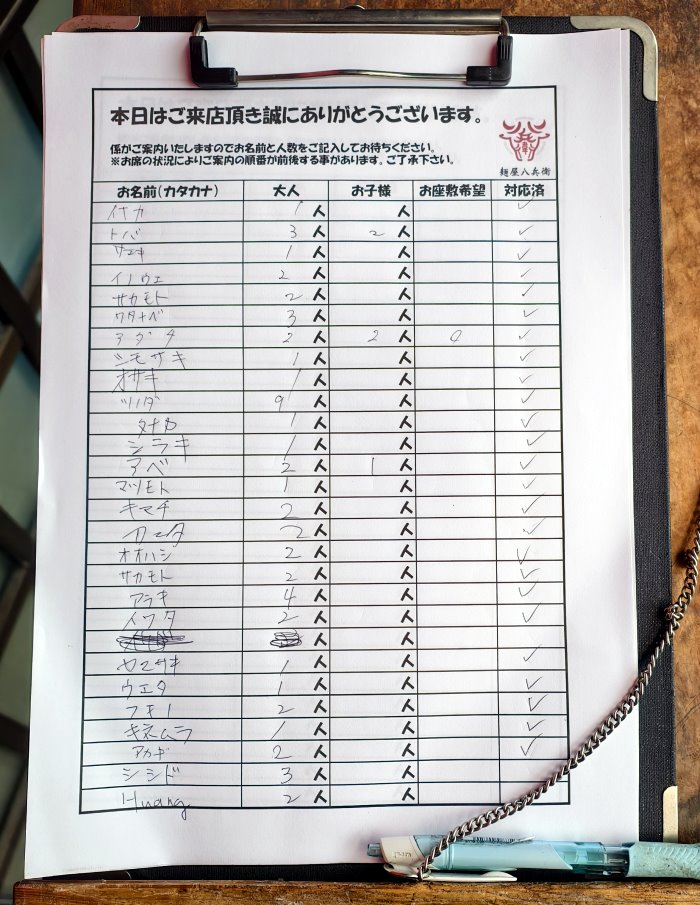 本日はご来店頂き誠にありがとうございます。
係がご案内いたしますのでお名前と人数をご記入してお待ちください。
※お席の状況によりご案内の順番が前後する事があります。ご了承下さい。
麺屋八兵衛
お名前(カタカナ) 大人 お子様 お座敷希望 対応済
イナカ 1人 人 ✓
トバ 3人 2人 ✓
サエキ 1人 人 ✓
イノウェ 2人 人 ✓
サカモト 2人 人 ✓
ワタナベ 3人 人 ✓
2人 2人 ✓
シモサキ 1人 人 ✓
オザキ 1人 人 ✓
ツノダ 人 人 ✓
タナカ 1人 人 ✓
シラキ 1人 人 ✓
アベ 2人 1人 ✓
マツモト 1人 人 ✓
キマチ 2人 人 ✓
2人 人 ✓
オオハシ 2人 人 ✓
サカモト 2人 人 ✓
アラキ 4人 人 ✓
イワタ 2人 人 ✓
人 人
ヤマサキ 1人 人 ✓
ウエタ 1人 人 ✓
2人 人 ✓
キネムラ 1人 人 ✓
アカギ 2人 人 ✓
シシド 3人 人
Huang 2人 人